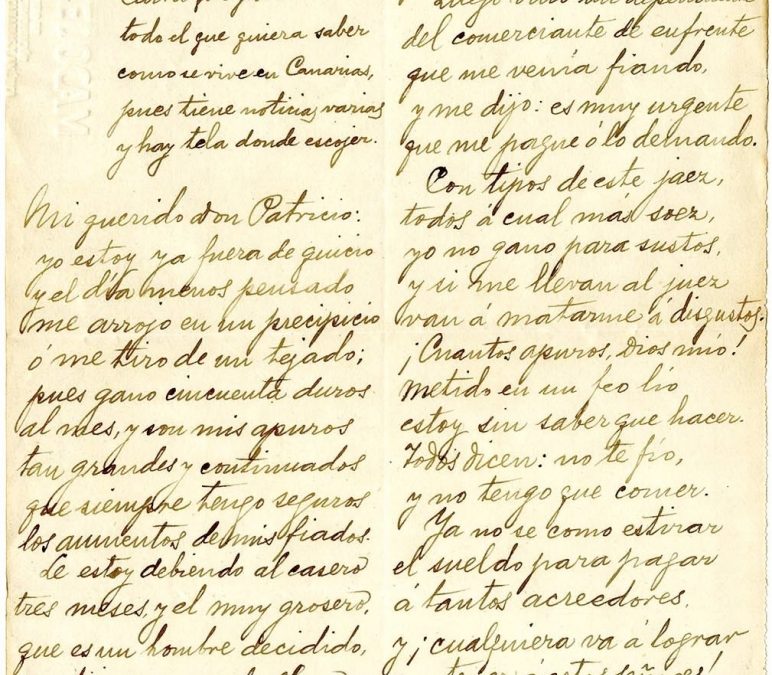 todo el que quiera saber
como se vive en Canarias,
pues tiene noticias varias
y hay tela donde escojer.
Mi querido don Patricio:
yo estoy ya fuera de quicio
y el día menos pensado
me arrojo en un precipicio
ó me tiro de un tejado;
pues gano cincuenta duros
al mes, y son mis apuros
tan grandes y continuados
que siempre tengo seguros
los aumentos de mis fiados.
Le estoy debiendo al casero
tres meses, y el muy grosero,
que es un hombre decidido,
Luego vino un dependiente
del comerciante de enfrente
que me venía fiando,
y me dijo: es muy urgente
que me pague ó lo demando.
Con tipos de este jaez,
todos á cual más soez,
yo no gano para sustos,
y si me llevan al juez
van á matarme á disgustos.
¡Cuantos apuros, Dios mio!
Metido en un feo lío
estoy sin saber que hacer.
Todos dicen: no te fío,
y no tengo que comer.
Ya no se como estirar
el sueldo para pagar
á tantos acreedores,
y ¡cualquiera va á lograr